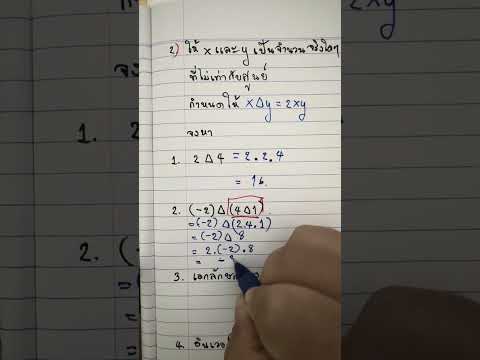 2) ให้ x และ y เป็นจำนวนจริงใดๆ
ที่ไม่เท่ากับศูนย์
กำหนดให้ x∆y = 2xy
จงหา
1.
1. 2 ∆ 4 = 2.2.4
= 16
2.
2. (-2) ∆ (4∆1)
= (-2) ∆ (2.4.1)
= (-2) ∆ 8
= 2.(-2).8
= -
3. เอกลักษณ์
4.